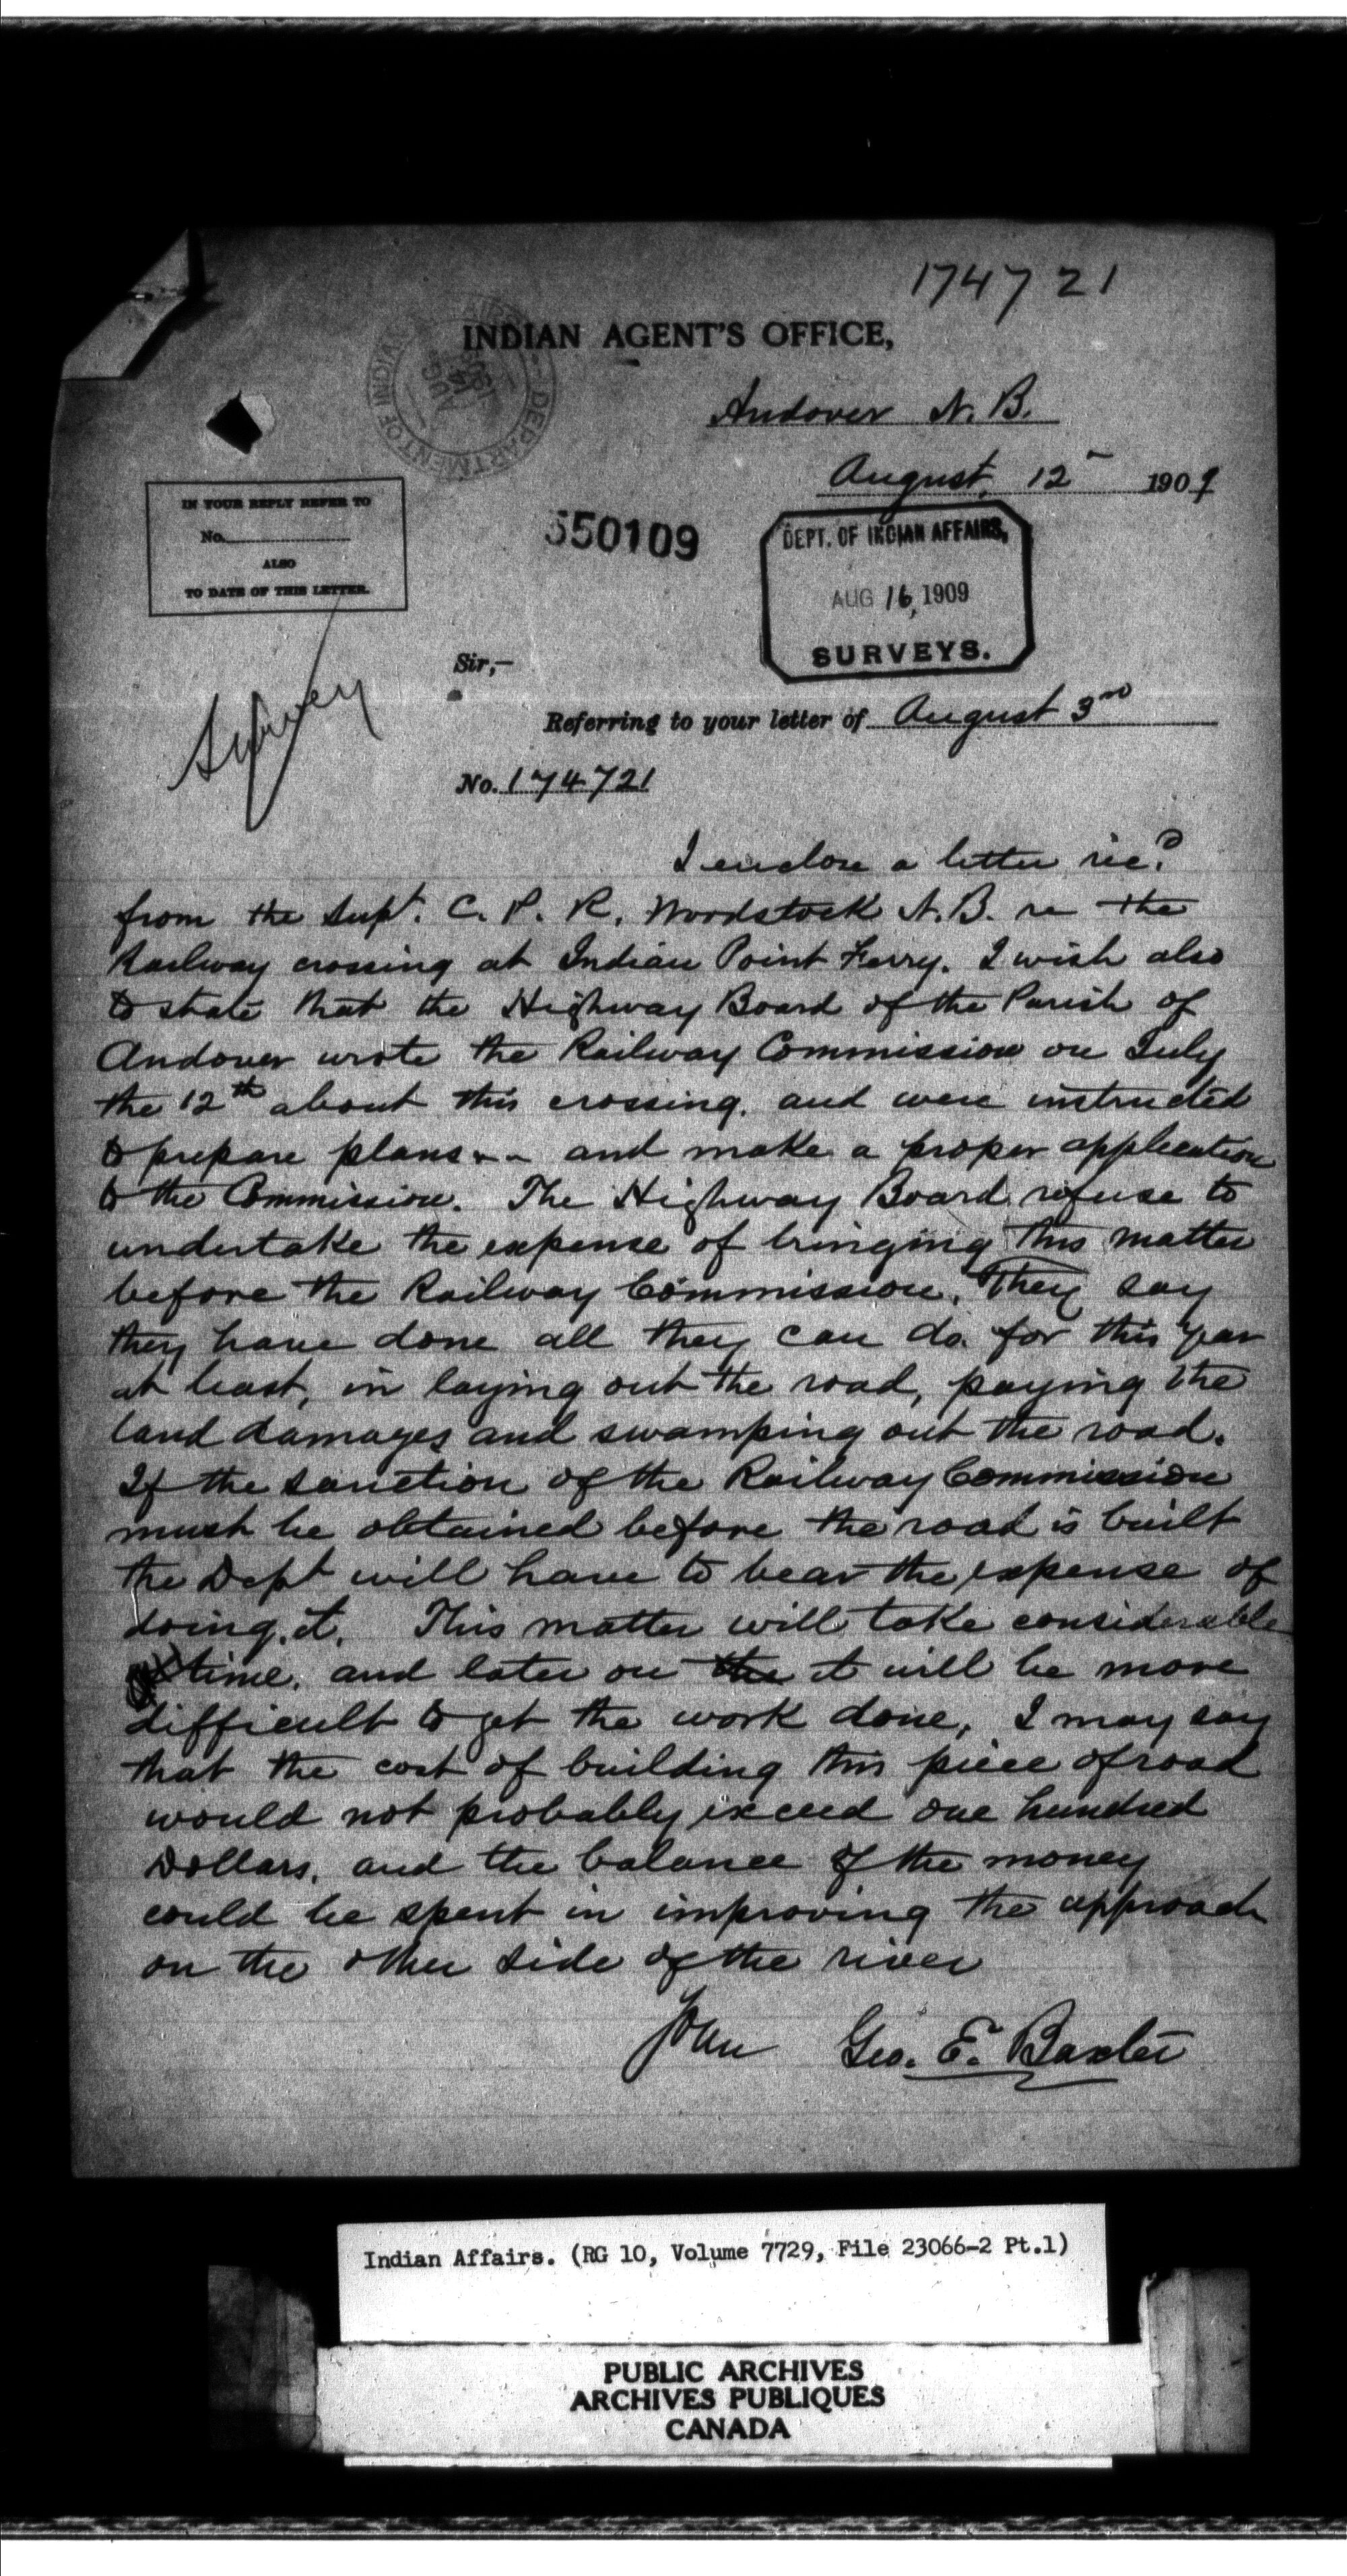 174721
INDIAN AGENT'S OFFICE,
DEPARTMENT OF INDIAN
AUG 14 1909
Andover N. B.
August 12 1909
IN YOUR REPLY REFER TO
No.
ALSO
TO DATE OF THIS LETTER.
550109
DEPT. OF INDIAN AFFAIRS,
AUG 16, 1909
SURVEYS.
Sir,—
Survey
Referring to your letter of August 3rd
No. 174721
I enclose a letter rec'd
from the Supt. C. P. R. Woodstock N. B. re the
Railway crossing at Indian Point Ferry. I wish also
to state that the Highway Board of the Parish of
Andover wrote the Railway Commission on July
the 12th about this crossing. and were instructed
to prepare plans - - and make a proper application
to the Commission. The Highway Board refuse to
undertake the expense of bringing this matter
before the Railway Commission. They say
they have done all they can do for this year
at least, in laying out the road, paying the
land damages and swamping out the road.
If the sanction of the Railway Commission
must be obtained before the road is built
the Dept will have to bear the expense of
doing it. This matter will take considerable
time, and later on the it will be more
difficult to get the work done, I may say
that the cost of building this piece of road
would not probably exceed one hundred
Dollars, and the balance of the money
could be spent in improving the approach
on the other side of the river
Geo. E. Baxter
Indian Affairs. (RG 10, Volume 7729, File 23066-2 Pt.1)
PUBLIC ARCHIVES
ARCHIVES PUBLIQUES
CANADA